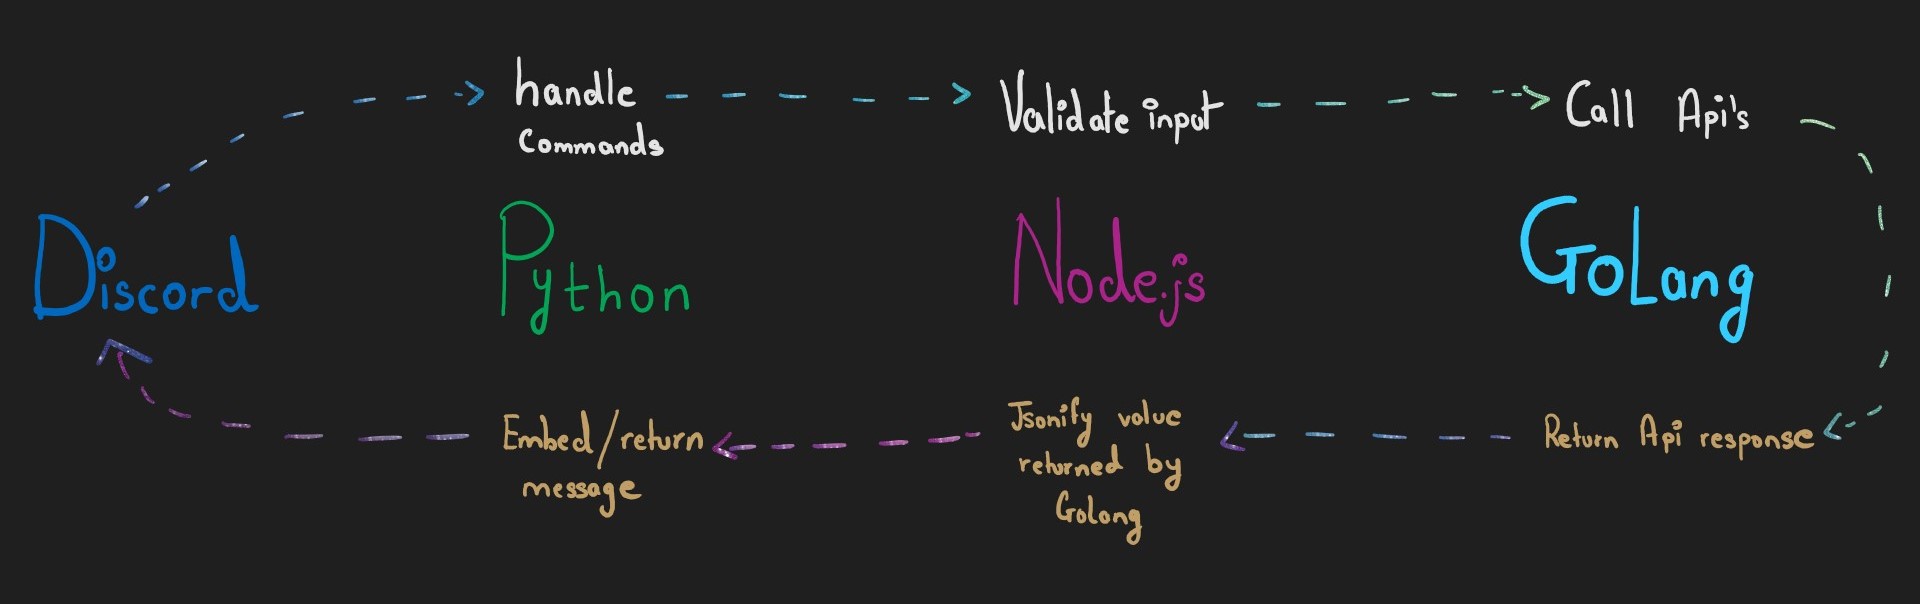 handle
commands
Validate input
Call Api's
Discord
Python
Node.js
GoLang
Embed/return
message
Jsonify value
returned by
Golang
Return Api response